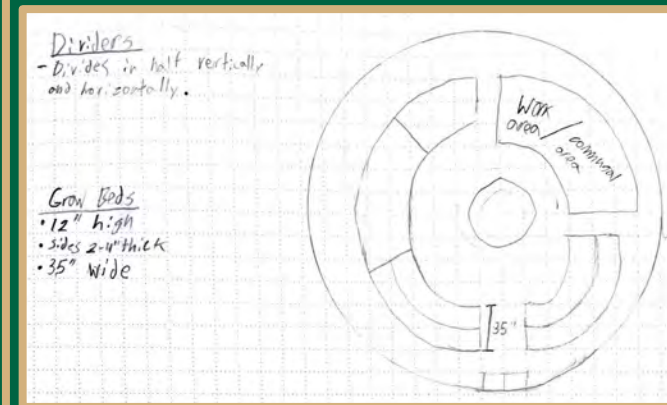 Dividers
- Divides in half vertically
and horizontally.
Grow Beds
• 12" high
• sides 2-4" thick
• 35" wide
Work
area /
communal
area
35"